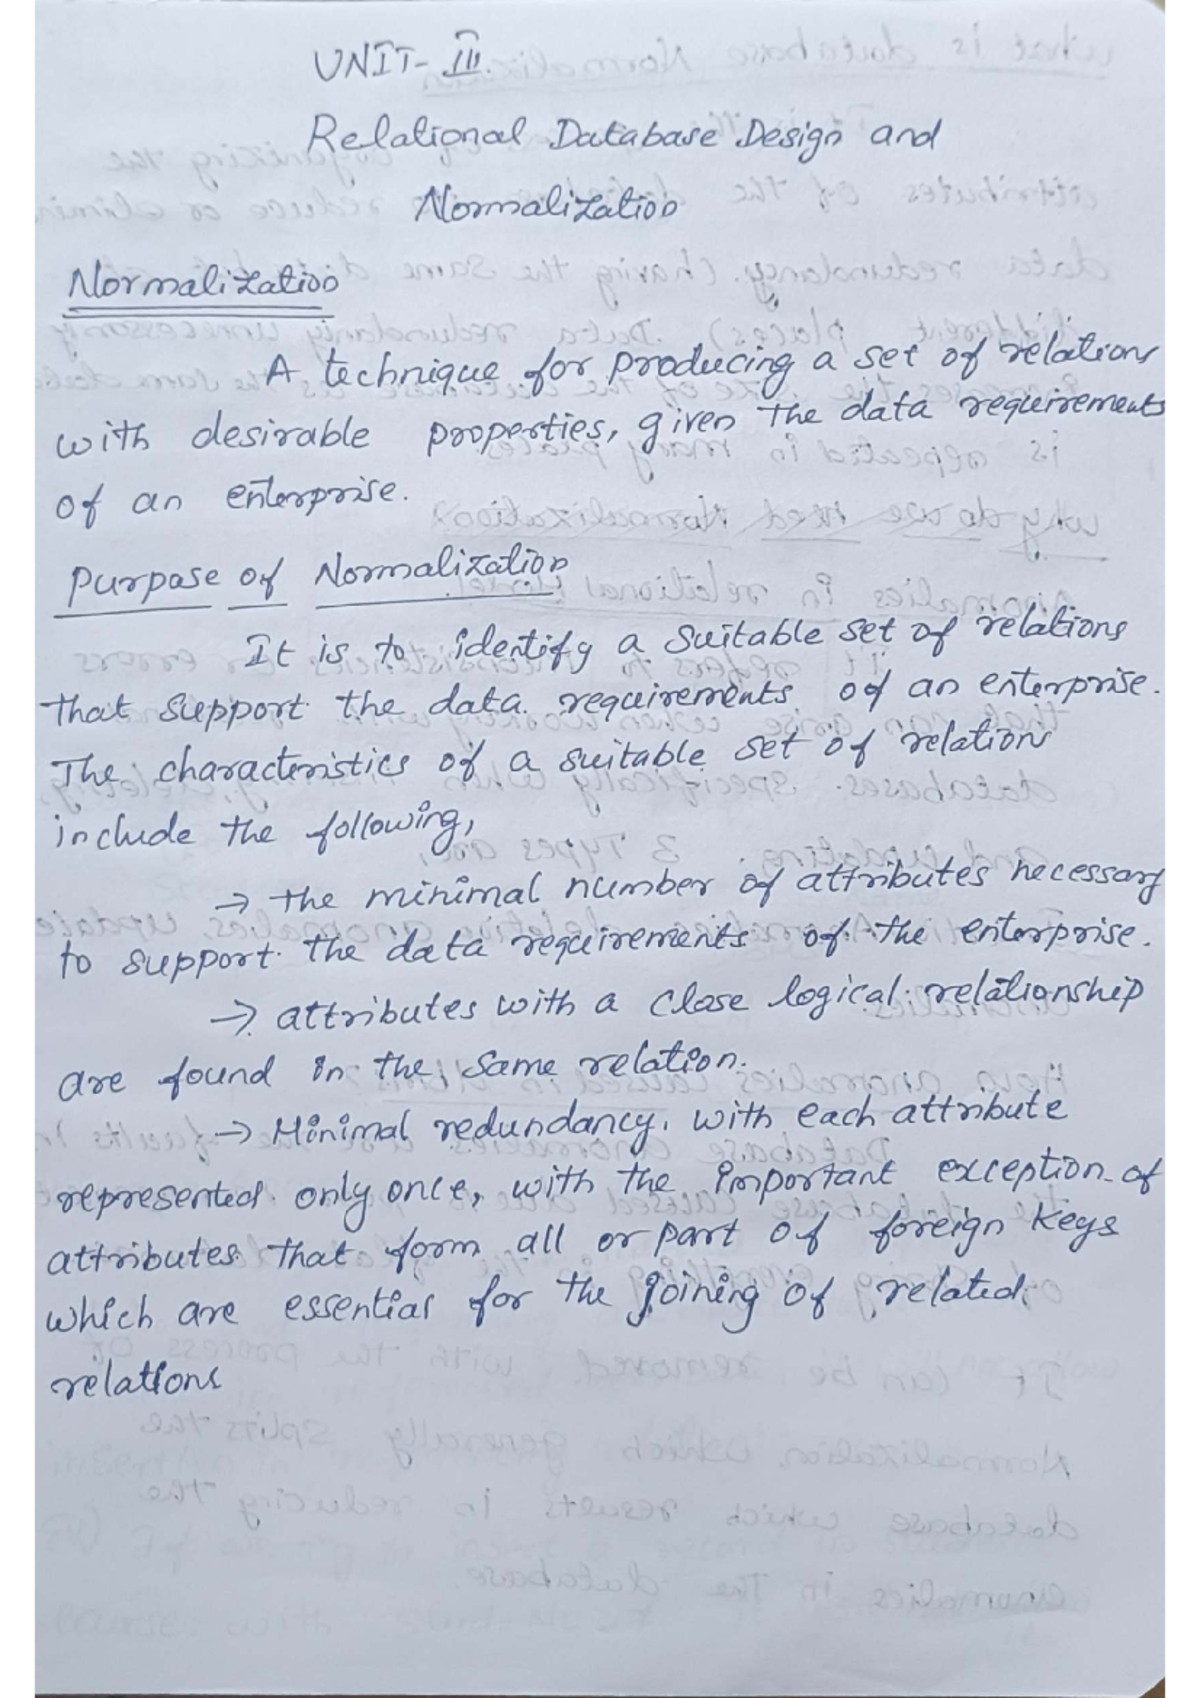 UNIT- III.
Relational Database Design and
Normalization
Normalization
A technique for producing a set of relations
with desirable properties, given the data requirements
of an enterprise.
Purpase of Normalization
It is to identify a suitable set of relations
that support the data requirements of an enterprise.
The characteristics of a suitable set of relations
include the following,
→ the minimal number of attributes necessary
to support the data requirements of the enterprise.
→ attributes with a close logical relationship
are found in the same relation.
→ Minimal redundancy. with each attribute
represented only once, with the important exception of
attributes that form all or part of foreign keys
which are essential for the joining of related
relations